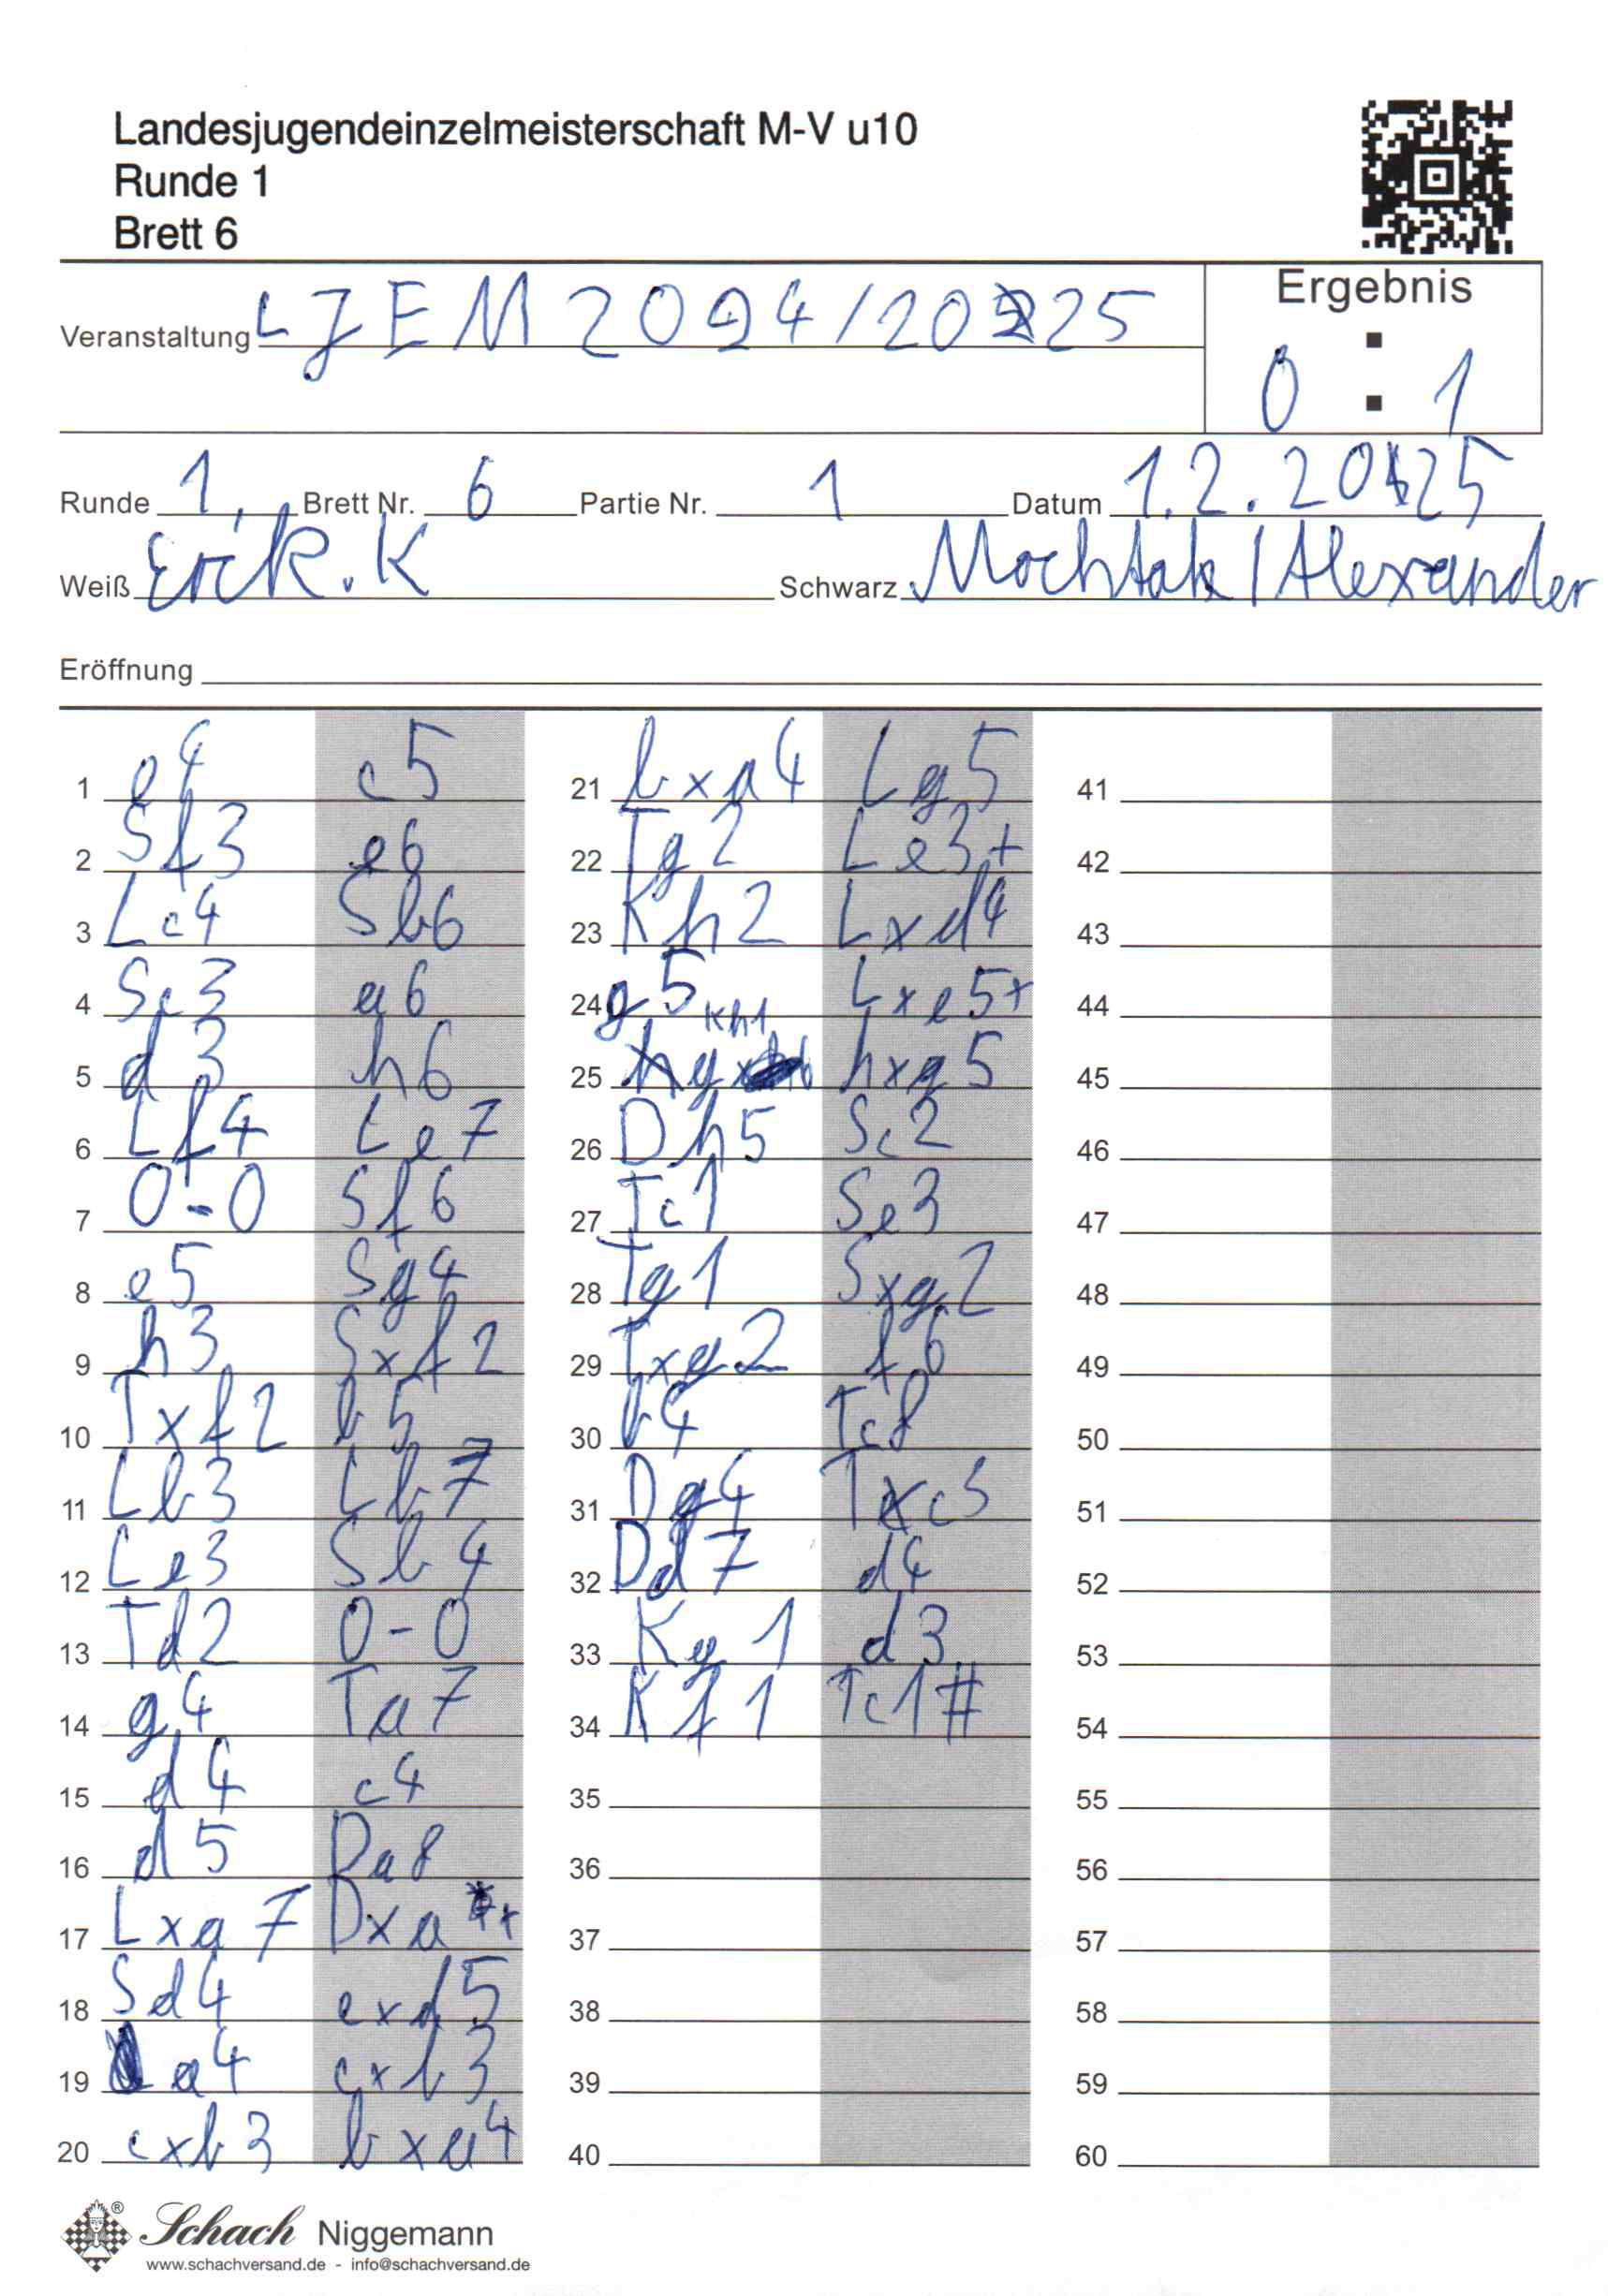 Landesjugendeinzelmeisterschaft M-V u10
Runde 1
Brett 6
Ergebnis
Veranstaltung LJEM 2024/2025
0 : 1
Runde 1. Brett Nr. 6 Partie Nr. 1 Datum 1.2.2025
Weiß Erik.K Schwarz Mochtak/Alexander
Eröffnung
1 e4 c5 21 bxa4 Lg5 41
2 Sf3 e6 22 Tg2 Le3+ 42
3 Lc4 Sb6 23 Kh2 Lxd4 43
4 Sc3 a6 24 g5 Lxe5+ 44
5 d3 h6 25 Kh1 hxg5 45
6 Lf4 Le7 26 Dh5 Sc2 46
7 0-0 Sf6 27 Tc1 Se3 47
8 e5 Sg4 28 Tg1 Sxg2 48
9 h3 Sxf2 29 Txg2 f6 49
10 Txf2 b5 30 b4 Tc8 50
11 Lb3 Lb7 31 Dg4 Txc3 51
12 Le3 Sb4 32 Dd7 d4 52
13 Td2 0-0 33 Kg1 d3 53
14 g4 Ta7 34 Kf1 Tc1# 54
15 d4 c4 35 55
16 d5 Da8 36 56
17 Lxa7 37 57
18 Sd4 exd5 38 58
19 a4 cxb3 39 59
20 cxb3 bxa4 40 60
Schach Niggemann
www.schachversand.de - info@schachversand.de